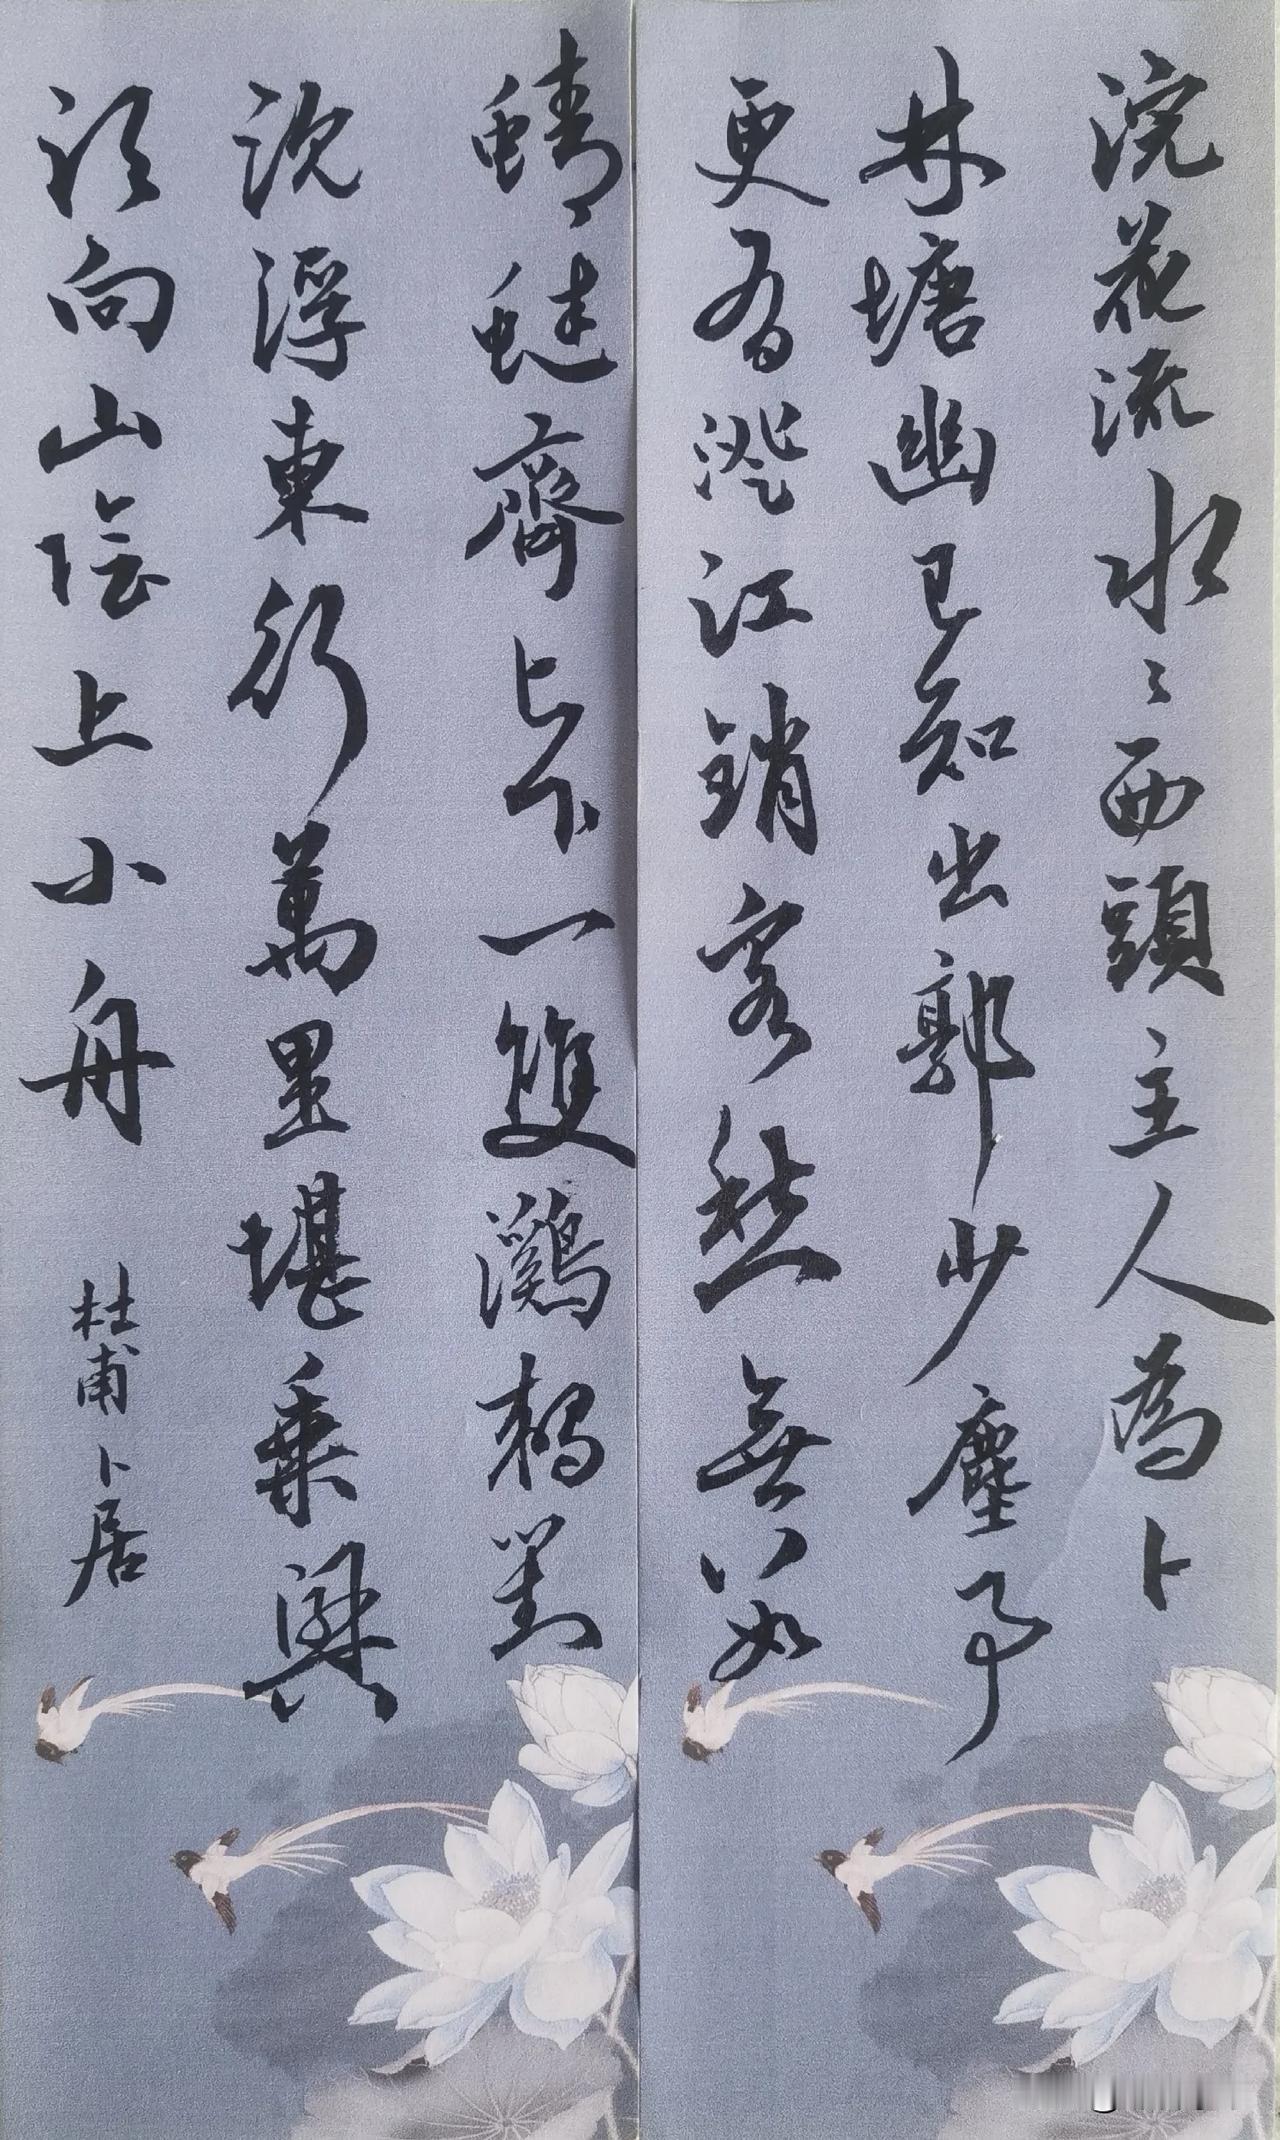 浣花流水〻西頭主人為卜
林塘幽已知出郭少塵事
更有澄江銷客愁無數
蜻蜓齊上下一雙鸂鶒對
沈浮東行萬里堪乘興
須向山陰上小舟
杜甫卜居